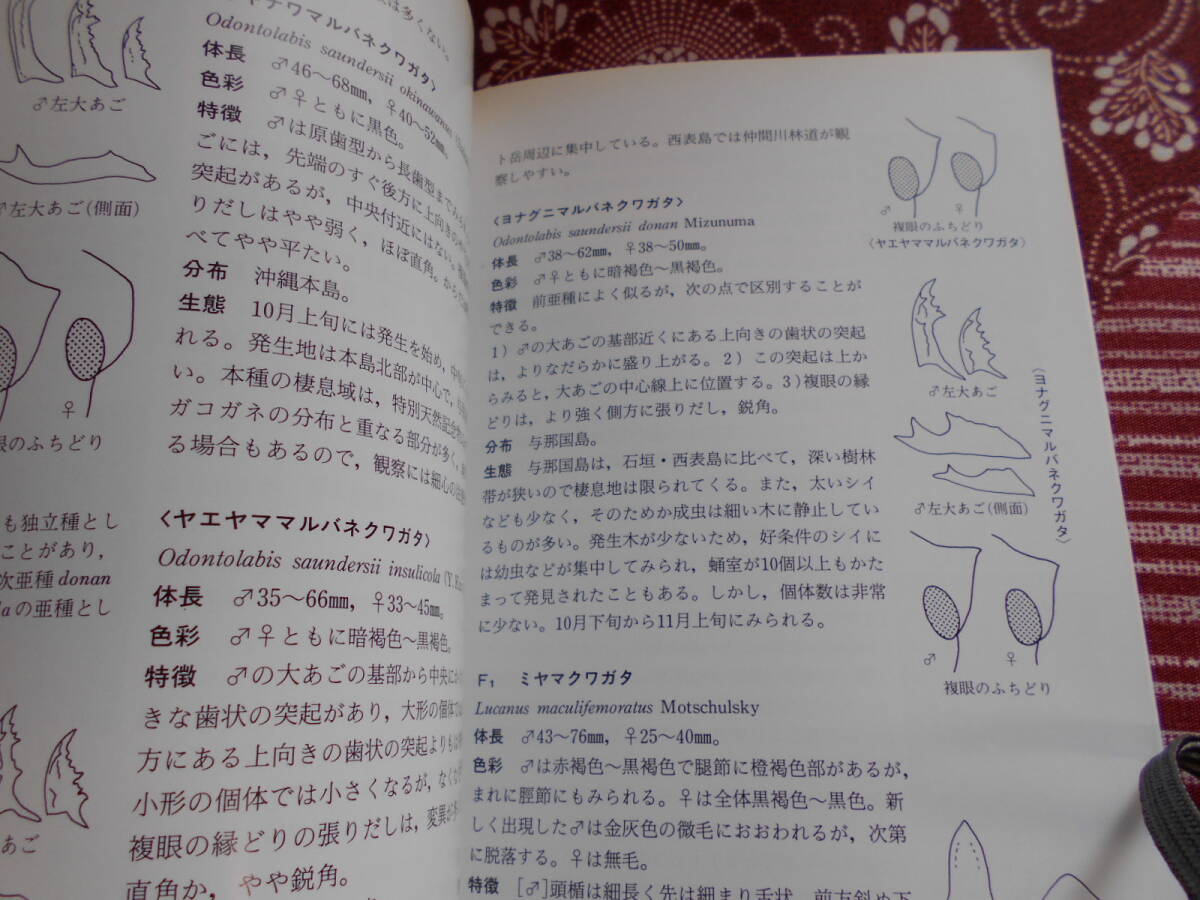 は多くない。
ナワマルバネクワガタ〉
Odontolabis saundersii okinawanus
体長 ♂46〜68mm, ♀40〜52mm。
色彩 ♂♀ともに黒色。
特徴 ♂は原歯型から長歯型まで
ごには，先端のすぐ後方に上向きの
突起があるが，中央付近にはない。
りだしはやや弱く，ほぼ直角。
べてやや平たい。
分布 沖縄本島。
生態 10月上旬には発生を始め，
れる。発生地は本島北部が中心で，
い。本種の棲息域は，特別天然記念
ガコガネの分布と重なる部分が多く，
る場合もあるので，観察には細心の
〈ヤエヤママルバネクワガタ〉
Odontolabis saundersii insulicola
体長 ♂35〜66mm, ♀33〜45mm。
色彩 ♂♀ともに暗褐色〜黒褐色。
特徴 ♂の大あごの基部から中央に
きな歯状の突起があり，大形の個体
方にある上向きの歯状の突起よりも
小形の個体では小さくなるが，なく
複眼の縁どりの張りだしは，変異が
直角か，やや鋭角。
♂左大あご
♂左大あご(側面)
♀
眼のふちどり
も独立種とし
ことがあり，
次亜種donan
laの亜種とし
あご
ト岳周辺に集中している。西表島では仲間川林道が観
察しやすい。
〈ヨナグニマルバネクワガタ〉
Odontolabis saundersii donan Mizunuma
体長 ♂38〜62mm, ♀38〜50mm。
色彩 ♂♀ともに暗褐色〜黒褐色。
特徴 前亜種によく似るが，次の点で区別することが
できる。
1）♂の大あごの基部近くにある上向きの歯状の突起
は，よりなだらかに盛り上がる。2）この突起は上か
らみると，大あごの中心線上に位置する。3）複眼の縁
どりは，より強く側方に張りだし，鋭角。
分布 与那国島。
生態 与那国島は，石垣・西表島に比べて，深い樹林
帯が狭いので棲息地は限られてくる。また，太いシイ
なども少なく，そのためか成虫は細い木に静止してい
るものが多い。発生木が少ないため，好条件のシイに
は幼虫などが集中してみられ，蛹室が10個以上もかた
まって発見されたこともある。しかし，個体数は非常
に少ない。10月下旬から11月上旬にみられる。
F₁ ミヤマクワガタ
Lucanus maculifemoratus Motschulsky
体長 ♂43〜76mm, ♀25〜40mm。
色彩 ♂は赤褐色〜黒褐色で腿節に橙褐色部があるが，
まれに脛節にもみられる。♀は全体黒褐色〜黒色。新
しく出現した♂は金灰色の微毛におおわれるが，次第
に脱落する。♀は無毛。
特徴 [♂]頭楯は細長く先は細まり舌状，前方斜め下
♂ ♀
複眼のふちどり
〈ヤエヤママルバネクワガタ〉
♂左大あご
♂左大あご(側面)
〈ヨナグニマルバネクワガタ〉
♂ ♀
複眼のふちどり